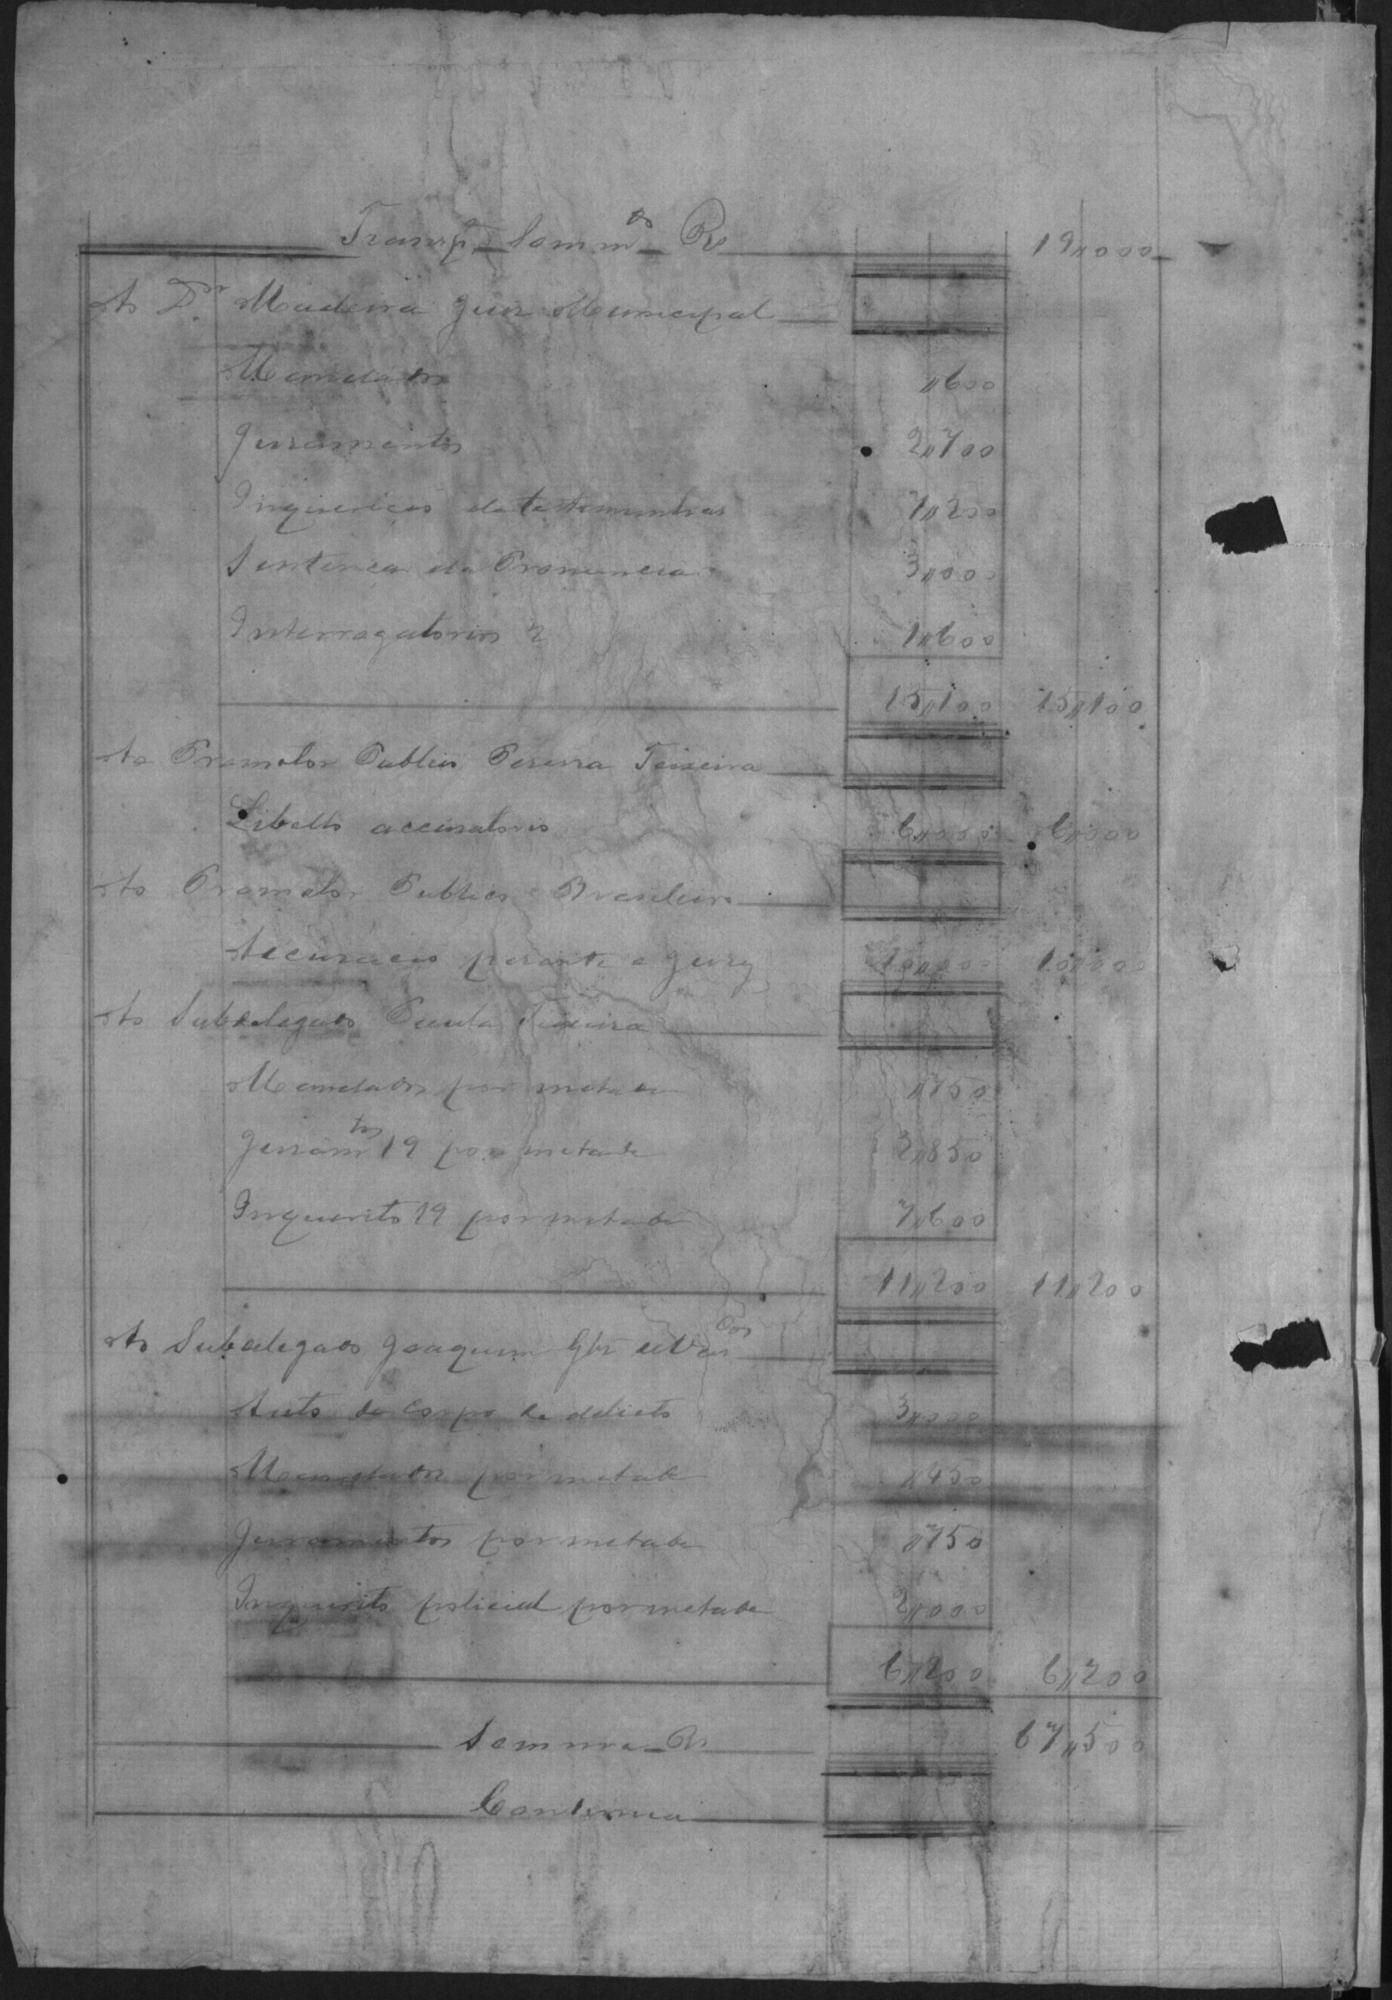 Transp. Somm.do Rs 19,,000
Ao Dr. Madeira Juiz Municipal
Mandados ,,600
Juramentos 2,,700
Inquirições de testemunhas 7,,200
Sentença de Pronuncia 3,,000
Interrogatorios 2 1,,600
15,,100 15,,100
Ao Promotor Publico Pereira Teixeira
Libello accusatorio 6,,000 6,,000
Ao Promotor Publico Brasileiro
Accusação perante o Jury 10,,000 10,,000
Ao Subdelegado Paula Teixeira
Mandados por metade ,,750
Juramtos 19 por metade 2,,850
Inquerito 19 por metade 7,,600
11,,200 11,,200
Ao Subdelegado Joaquim
Auto de Corpo de delicto 3,,000
Mandados por metade ,,450
Juramentos por metade ,,750
Inquerito policial por metade 2,,000
6,,200 6,,200
Somma Rs 67,,500
Continua